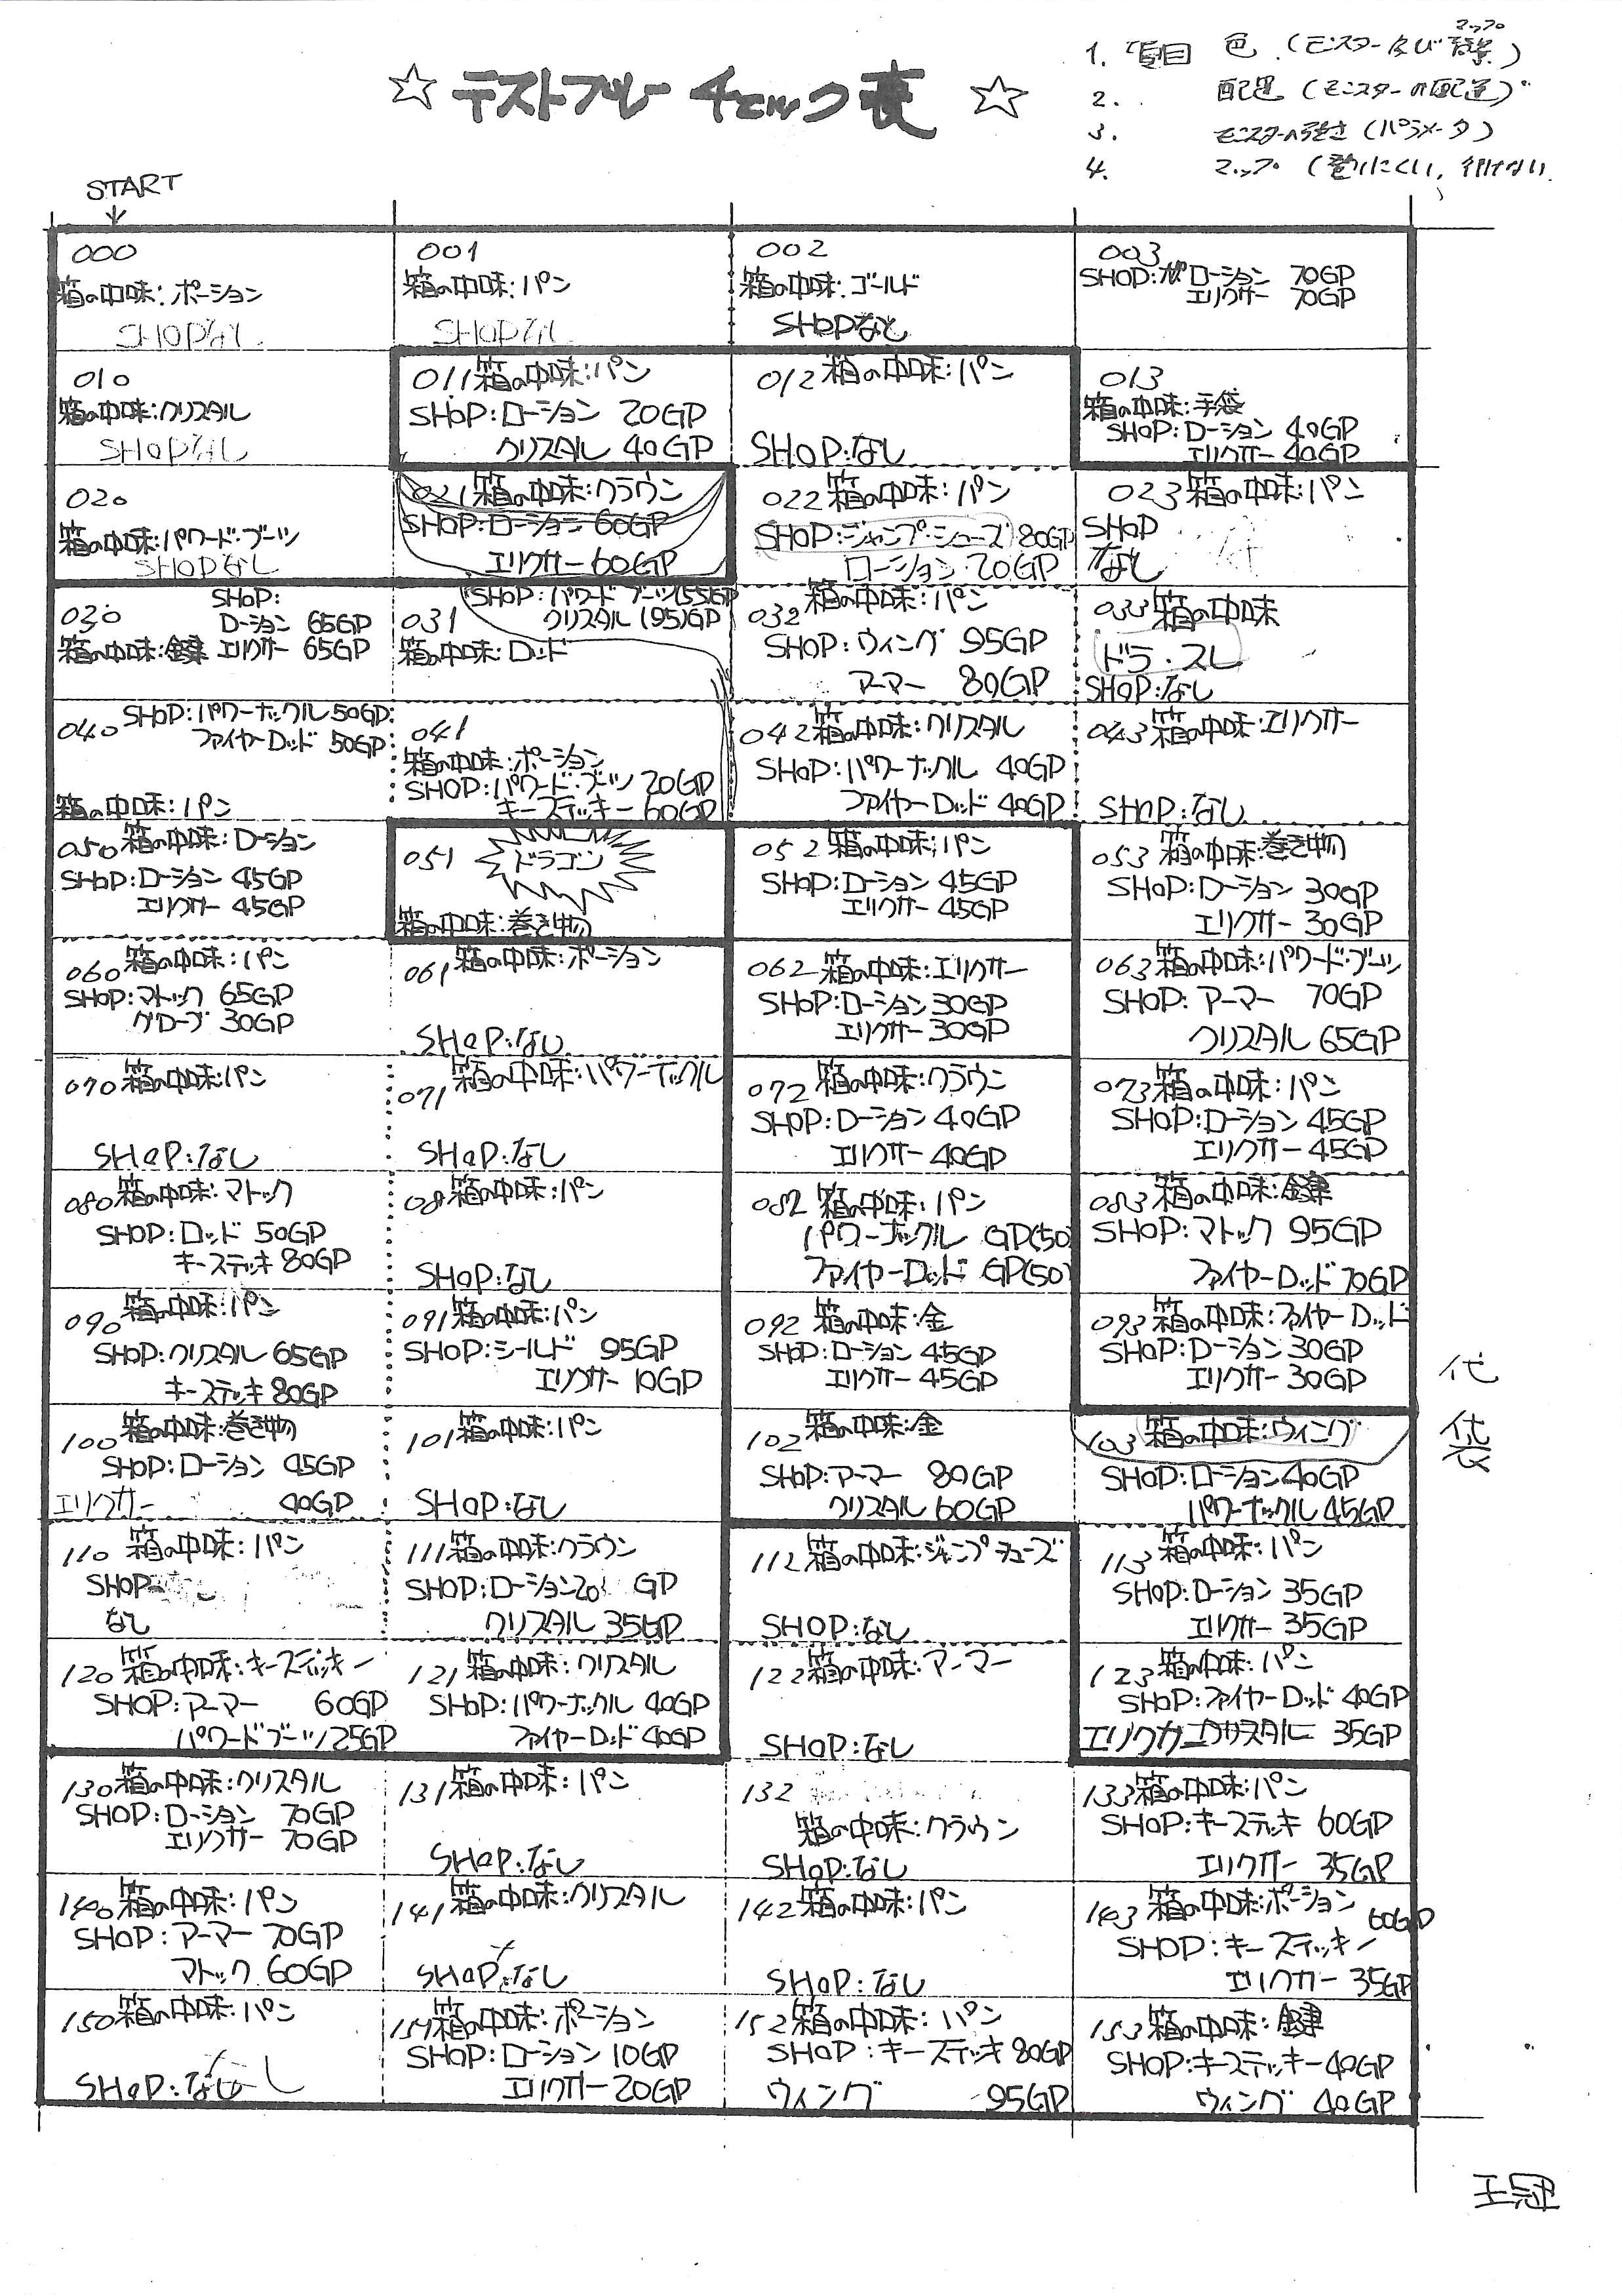 ☆ テストプレー チェック表 ☆
1. 項目 色 (モンスター及び背景)
マップ
2. 配置 (モンスターの配置)
3. モンスターの強さ (パラメータ)
4. マップ (動けにくい, 行けない
START
↓
000
箱の中味:ポーション
SHOPなし
001
箱の中味:パン
SHOPなし
002
箱の中味:ゴールド
SHOPなし
003
SHOP: ローション 70GP
エリクサー 70GP
010
箱の中味:クリスタル
SHOPなし
011 箱の中味:パン
SHOP:ローション 20GP
クリスタル 40GP
012 箱の中味:パン
SHOP:なし
013
箱の中味:手袋
SHOP:ローション 40GP
エリクサー 40GP
020
箱の中味:パワード・ブーツ
SHOPなし
021 箱の中味:クラウン
SHOP:ローション 60GP
エリクサー 60GP
022 箱の中味:パン
SHOP:ジャンプ・シューズ 80GP
ローション 20GP
023 箱の中味:パン
SHOP
なし
030 SHOP:
ローション 65GP
箱の中味:鍵 エリクサー 65GP
031 SHOP:パワード ブーツ(55)GP
クリスタル (95)GP
箱の中味:ロッド
032 箱の中味:パン
SHOP:ウィング 95GP
アーマー 80GP
033 箱の中味
ドラ・スレ
SHOP:なし
040 SHOP:パワーナックル 50GP
ファイヤーロッド 50GP
箱の中味:パン
041
箱の中味:ポーション
SHOP:パワード・ブーツ 20GP
キーステッキー 60GP
042 箱の中味:クリスタル
SHOP:パワーナックル 40GP
ファイヤーロッド 40GP
043 箱の中味:エリクサー
SHOP:なし
050 箱の中味:ローション
SHOP:ローション 45GP
エリクサー 45GP
051 ドラゴン
箱の中味:巻き物
052 箱の中味:パン
SHOP:ローション 45GP
エリクサー 45GP
053 箱の中味:巻き物
SHOP:ローション 30GP
エリクサー 30GP
060 箱の中味:パン
SHOP:マトック 65GP
グローブ 30GP
061 箱の中味:ポーション
SHOP:なし
062 箱の中味:エリクサー
SHOP:ローション 30GP
エリクサー 30GP
063 箱の中味:パワード・ブーツ
SHOP: アーマー 70GP
クリスタル 65GP
070 箱の中味:パン
SHOP:なし
071 箱の中味:パワーナックル
SHOP:なし
072 箱の中味:クラウン
SHOP:ローション 40GP
エリクサー 40GP
073 箱の中味:パン
SHOP:ローション 45GP
エリクサー 45GP
080 箱の中味:マトック
SHOP:ロッド 50GP
キーステッキ 80GP
081 箱の中味:パン
SHOP:なし
082 箱の中味:パン
パワーナックル GP(50)
ファイヤーロッド GP(50)
083 箱の中味:鍵
SHOP:マトック 95GP
ファイヤーロッド 70GP
090 箱の中味:パン
SHOP:クリスタル 65GP
キーステッキ 80GP
091 箱の中味:パン
SHOP:シールド 95GP
エリクサー 10GP
092 箱の中味:金
SHOP:ローション 45GP
エリクサー 45GP
093 箱の中味:ファイヤーロッド
SHOP:ローション 30GP
エリクサー 30GP
代
袋
100 箱の中味:巻き物
SHOP:ローション 45GP
エリクサー 40GP
101 箱の中味:パン
SHOP:なし
102 箱の中味:金
SHOP:アーマー 80GP
クリスタル 60GP
103 箱の中味:ウィング
SHOP:ローション 40GP
パワーナックル 45GP
110 箱の中味:パン
SHOP
なし
111 箱の中味:クラウン
SHOP:ローション 20 GP
クリスタル 35GP
112 箱の中味:ジャンプシューズ
SHOP:なし
113 箱の中味:パン
SHOP:ローション 35GP
エリクサー 35GP
120 箱の中味:キーステッキー
SHOP:アーマー 60GP
パワードブーツ 25GP
121 箱の中味:クリスタル
SHOP:パワーナックル 40GP
ファイヤーロッド 40GP
122 箱の中味:アーマー
SHOP:なし
123 箱の中味:パン
SHOP:ファイヤーロッド 40GP
35GP
130 箱の中味:クリスタル
SHOP:ローション 70GP
エリクサー 70GP
131 箱の中味:パン
SHOP:なし
132
箱の中味:クラウン
SHOP:なし
133 箱の中味:パン
SHOP:キーステッキ 60GP
エリクサー 35GP
140 箱の中味:パン
SHOP:アーマー 70GP
マトック 60GP
141 箱の中味:クリスタル
SHOP:なし
142 箱の中味:パン
SHOP:なし
143 箱の中味:ポーション
60GP
SHOP:キーステッキー
エリクサー 35GP
150 箱の中味:パン
SHOP:なし
151 箱の中味:ポーション
SHOP:ローション 10GP
エリクサー 20GP
152 箱の中味:パン
SHOP:キーステッキ 80GP
ウィング 95GP
153 箱の中味:鍵
SHOP:キーステッキー 40GP
ウィング 40GP
王冠